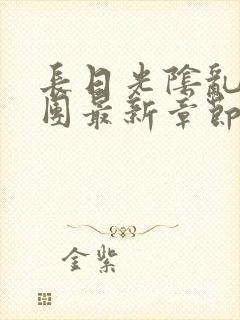 長日光陰亂
團最新章節
金紫